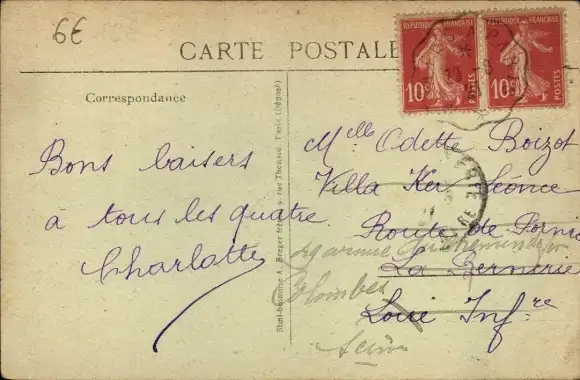 6€
CARTE POSTALE
REPUBLIQUE FRANÇAISE
10c
POSTES
REPUBLIQUE FRANÇAISE
10c
POSTES
Correspondance
Bons baisers
à tous les quatre
Charlotte
Mlle Odette Boizot
Villa Ker Léonce
Route de Pornic
La Bernerie
Loire Infre
avenue
Colombes
Seine
A. Breger frères, 9, rue Thénard, Paris (Déposé)